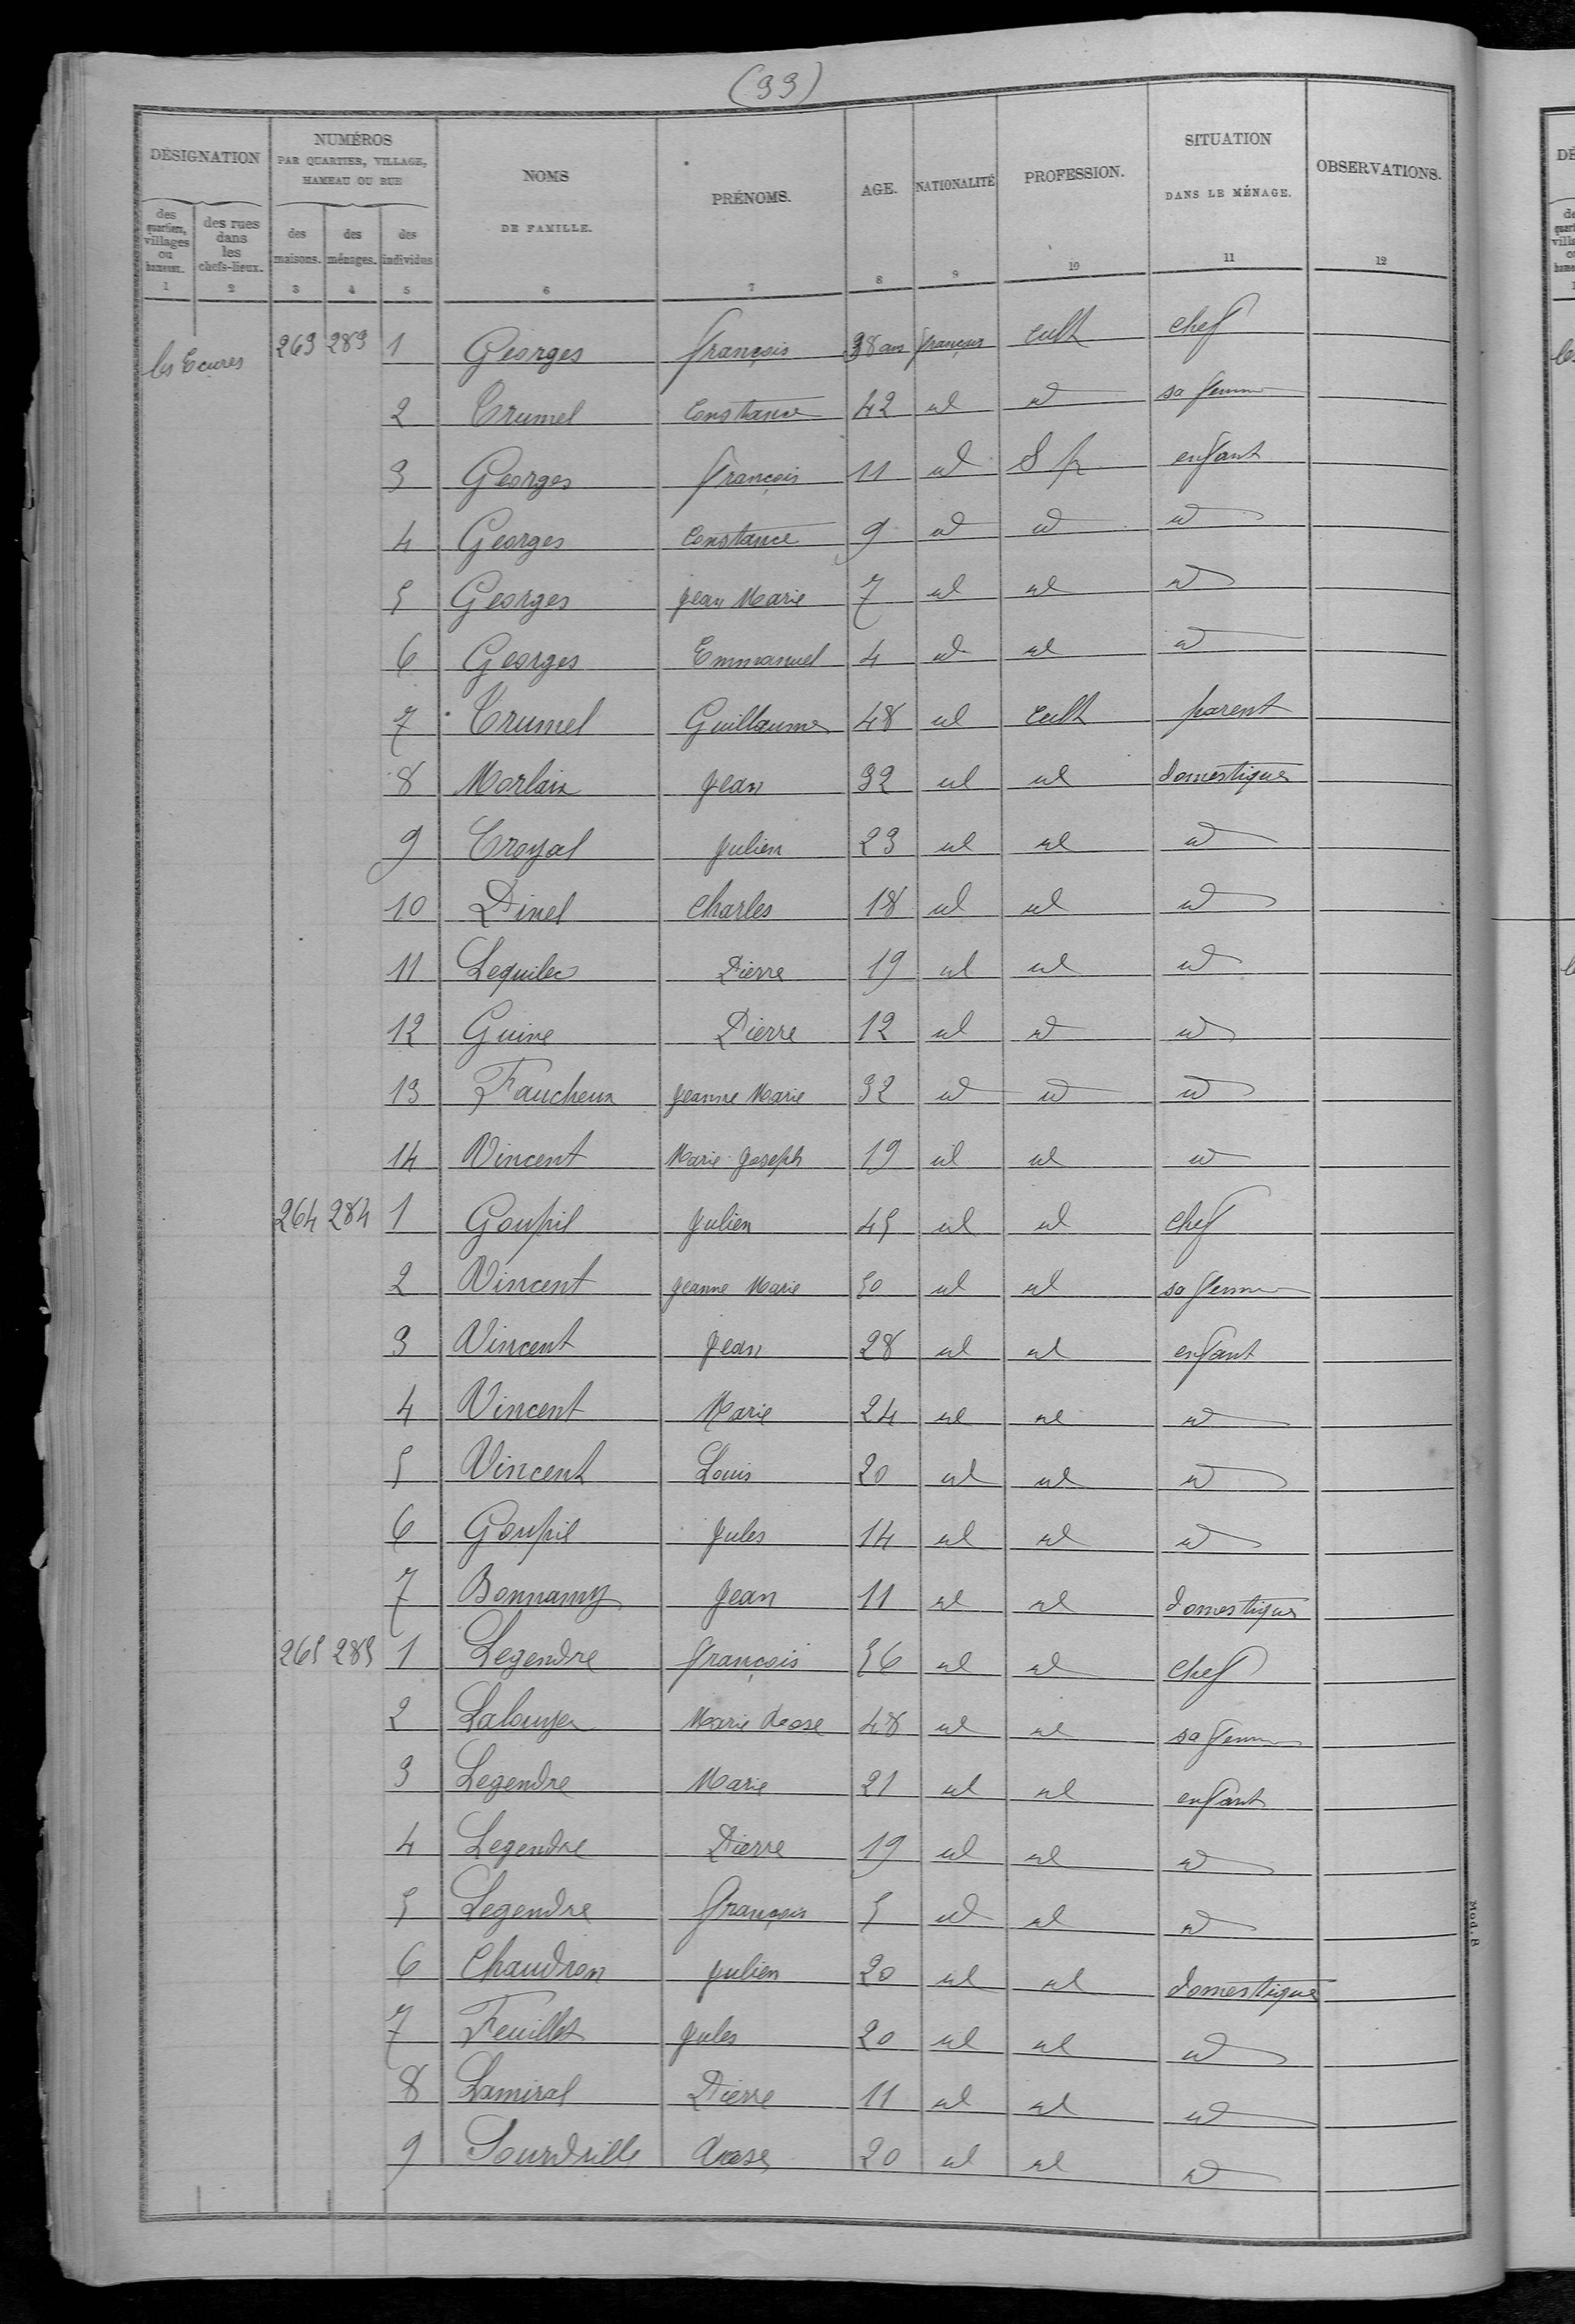 (33)
DÉSIGNATION
NUMÉROS
PAR QUARTIER, VILLAGE,
HAMEAU OU RUE
NOMS
DE FAMILLE.
PRÉNOMS.
AGE.
NATIONALITÉ
PROFESSION.
SITUATION
DANS LE MÉNAGE.
OBSERVATIONS.
des quartiers, villages ou hameaux.
des rues dans les chefs-lieux.
des maisons.
des ménages.
des individus
1 2 3 4 5 6 7 8 9 10 11 12
les Ecures 263 283 1 Georges françois 38 ans français cult chef
2 Trumel Constance 42 id id sa femme
3 Georges françois 11 id S p enfant
4 Georges Constance 9 id id id
5 Georges Jean Marie 7 id id id
6 Georges Emmanuel 4 id id id
7 Trumel Guillaume 48 id cult parent
8 Morlaix Jean 32 id id domestique
9 Troyal Julien 23 id id id
10 Dinel Charles 18 id id id
11 Lequilec Pierre 19 id id id
12 Guine Pierre 12 id id id
13 Faucheux Jeanne Marie 32 id id id
14 Vincent Marie Joseph 19 id id id
264 284 1 Goupil Julien 45 id id chef
2 Vincent Jeanne Marie 50 id id sa femme
3 Vincent Jean 28 id id enfant
4 Vincent Marie 24 id id id
5 Vincent Louis 20 id id id
6 Goupil Jules 14 id id id
7 Bonnamy Jean 11 id id domestique
265 285 1 Legendre françois 56 id id chef
2 Lalouyer Marie Rose 48 id id sa femme
3 Legendre Marie 21 id id enfant
4 Legendre Pierre 19 id id id
5 Legendre françois 5 id id id
6 Chaudron Julien 20 id id domestique
7 Feuillet Jules 20 id id id
8 Lamiral Pierre 11 id id id
9 Sourdrille Rose 20 id id id
Mod. B